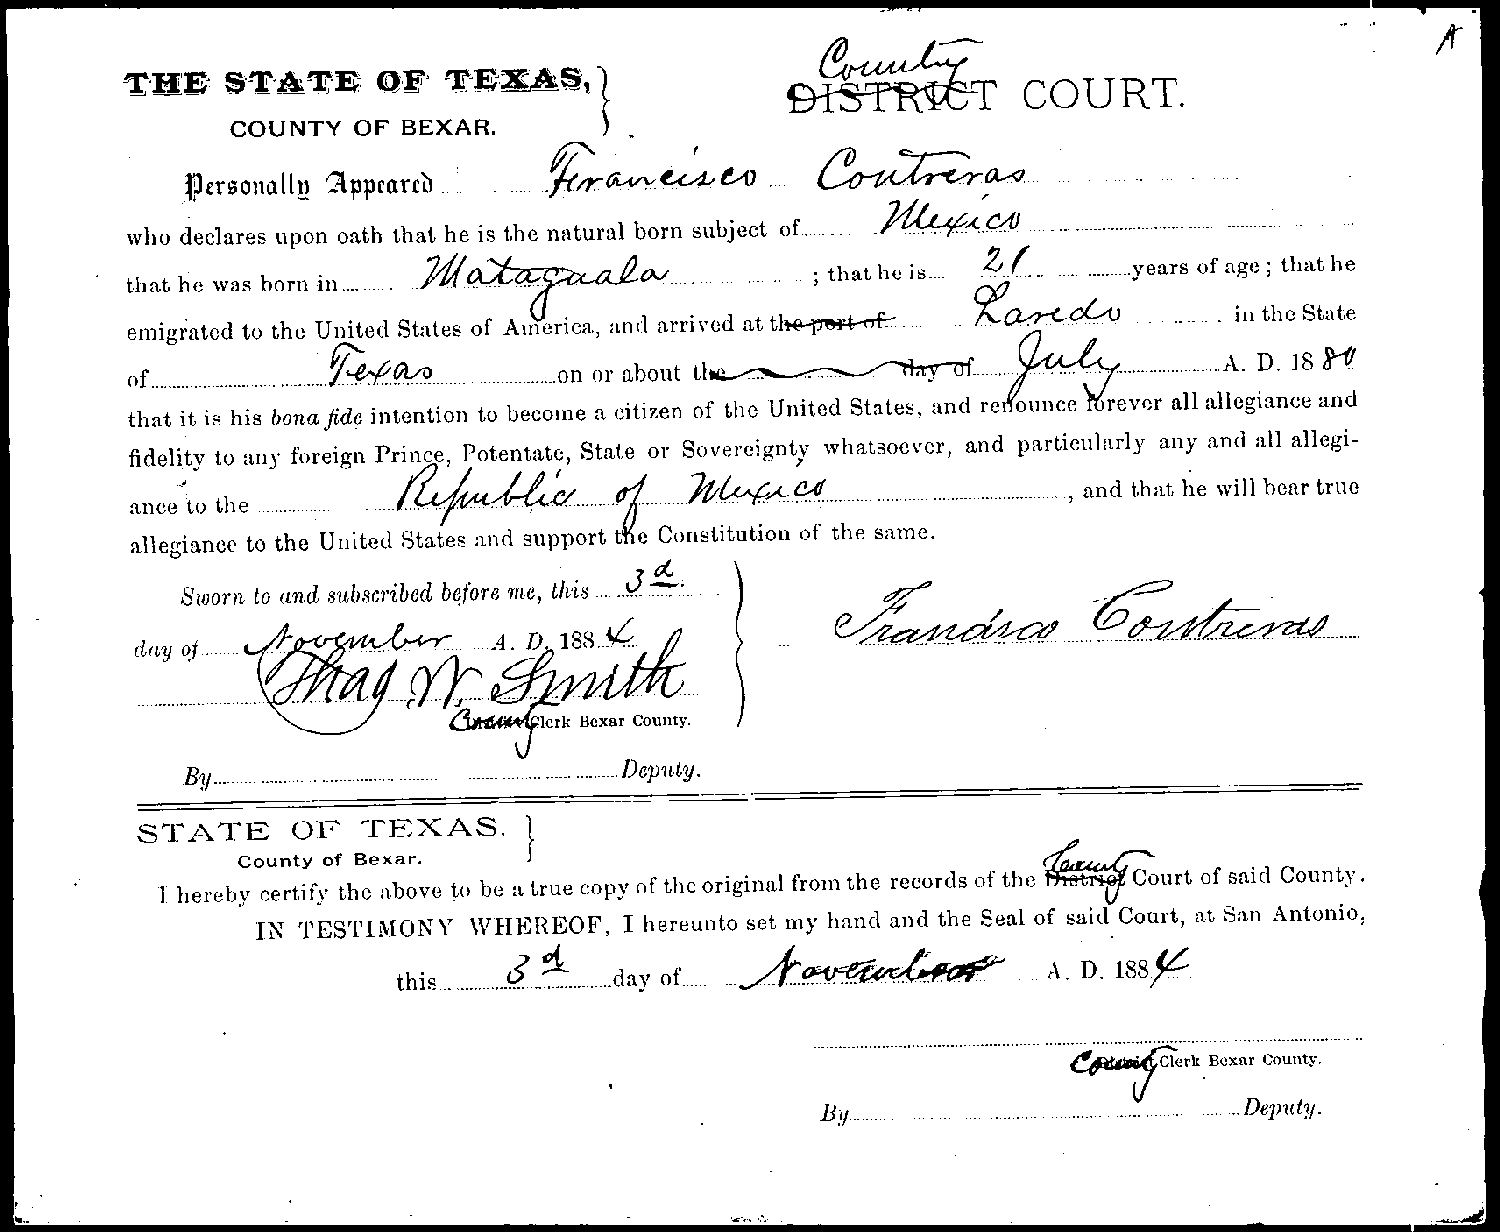 A
THE STATE OF TEXAS,
COUNTY OF BEXAR.
County
DISTRICT COURT.
Personally Appeared Francisco Contreras
who declares upon oath that he is the natural born subject of Mexico
that he was born in Mataguala ; that he is 21 years of age; that he
emigrated to the United States of America, and arrived at the port of Laredo in the State
of Texas on or about the day of July A. D. 1880
that it is his bona fide intention to become a citizen of the United States, and renounce forever all allegiance and
fidelity to any foreign Prince, Potentate, State or Sovereignty whatsoever, and particularly any and all allegi-
ance to the Republic of Mexico , and that he will bear true
allegiance to the United States and support the Constitution of the same.
Sworn to and subscribed before me, this 3d.
day of November A. D. 1884
Francisco Contreras
Thad W. Smith
County Clerk Bexar County.
By Deputy.
STATE OF TEXAS.
County of Bexar.
County
I hereby certify the above to be a true copy of the original from the records of the District Court of said County.
IN TESTIMONY WHEREOF, I hereunto set my hand and the Seal of said Court, at San Antonio,
this 3d day of November A. D. 1884
County Clerk Bexar County.
By Deputy.